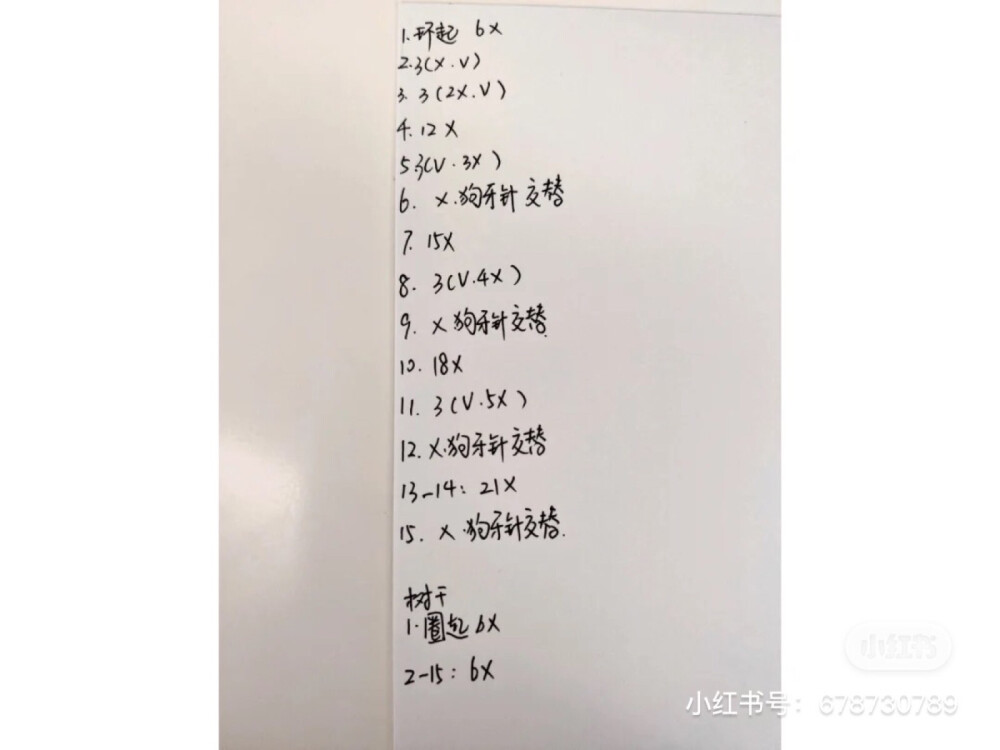 1.环起 6X
2.3(X.V)
3. 3(2X.V)
4.12X
5 3(V.3X)
6. X.狗牙针交替
7. 15X
8. 3(V.4X)
9. X狗牙针交替.
10. 18X
11. 3(V.5X)
12. X.狗牙针交替
13-14: 21X
15. X.狗牙针交替.
树干
1.圈起 6X
2-15: 6X
小红书
小红书号: 678730789